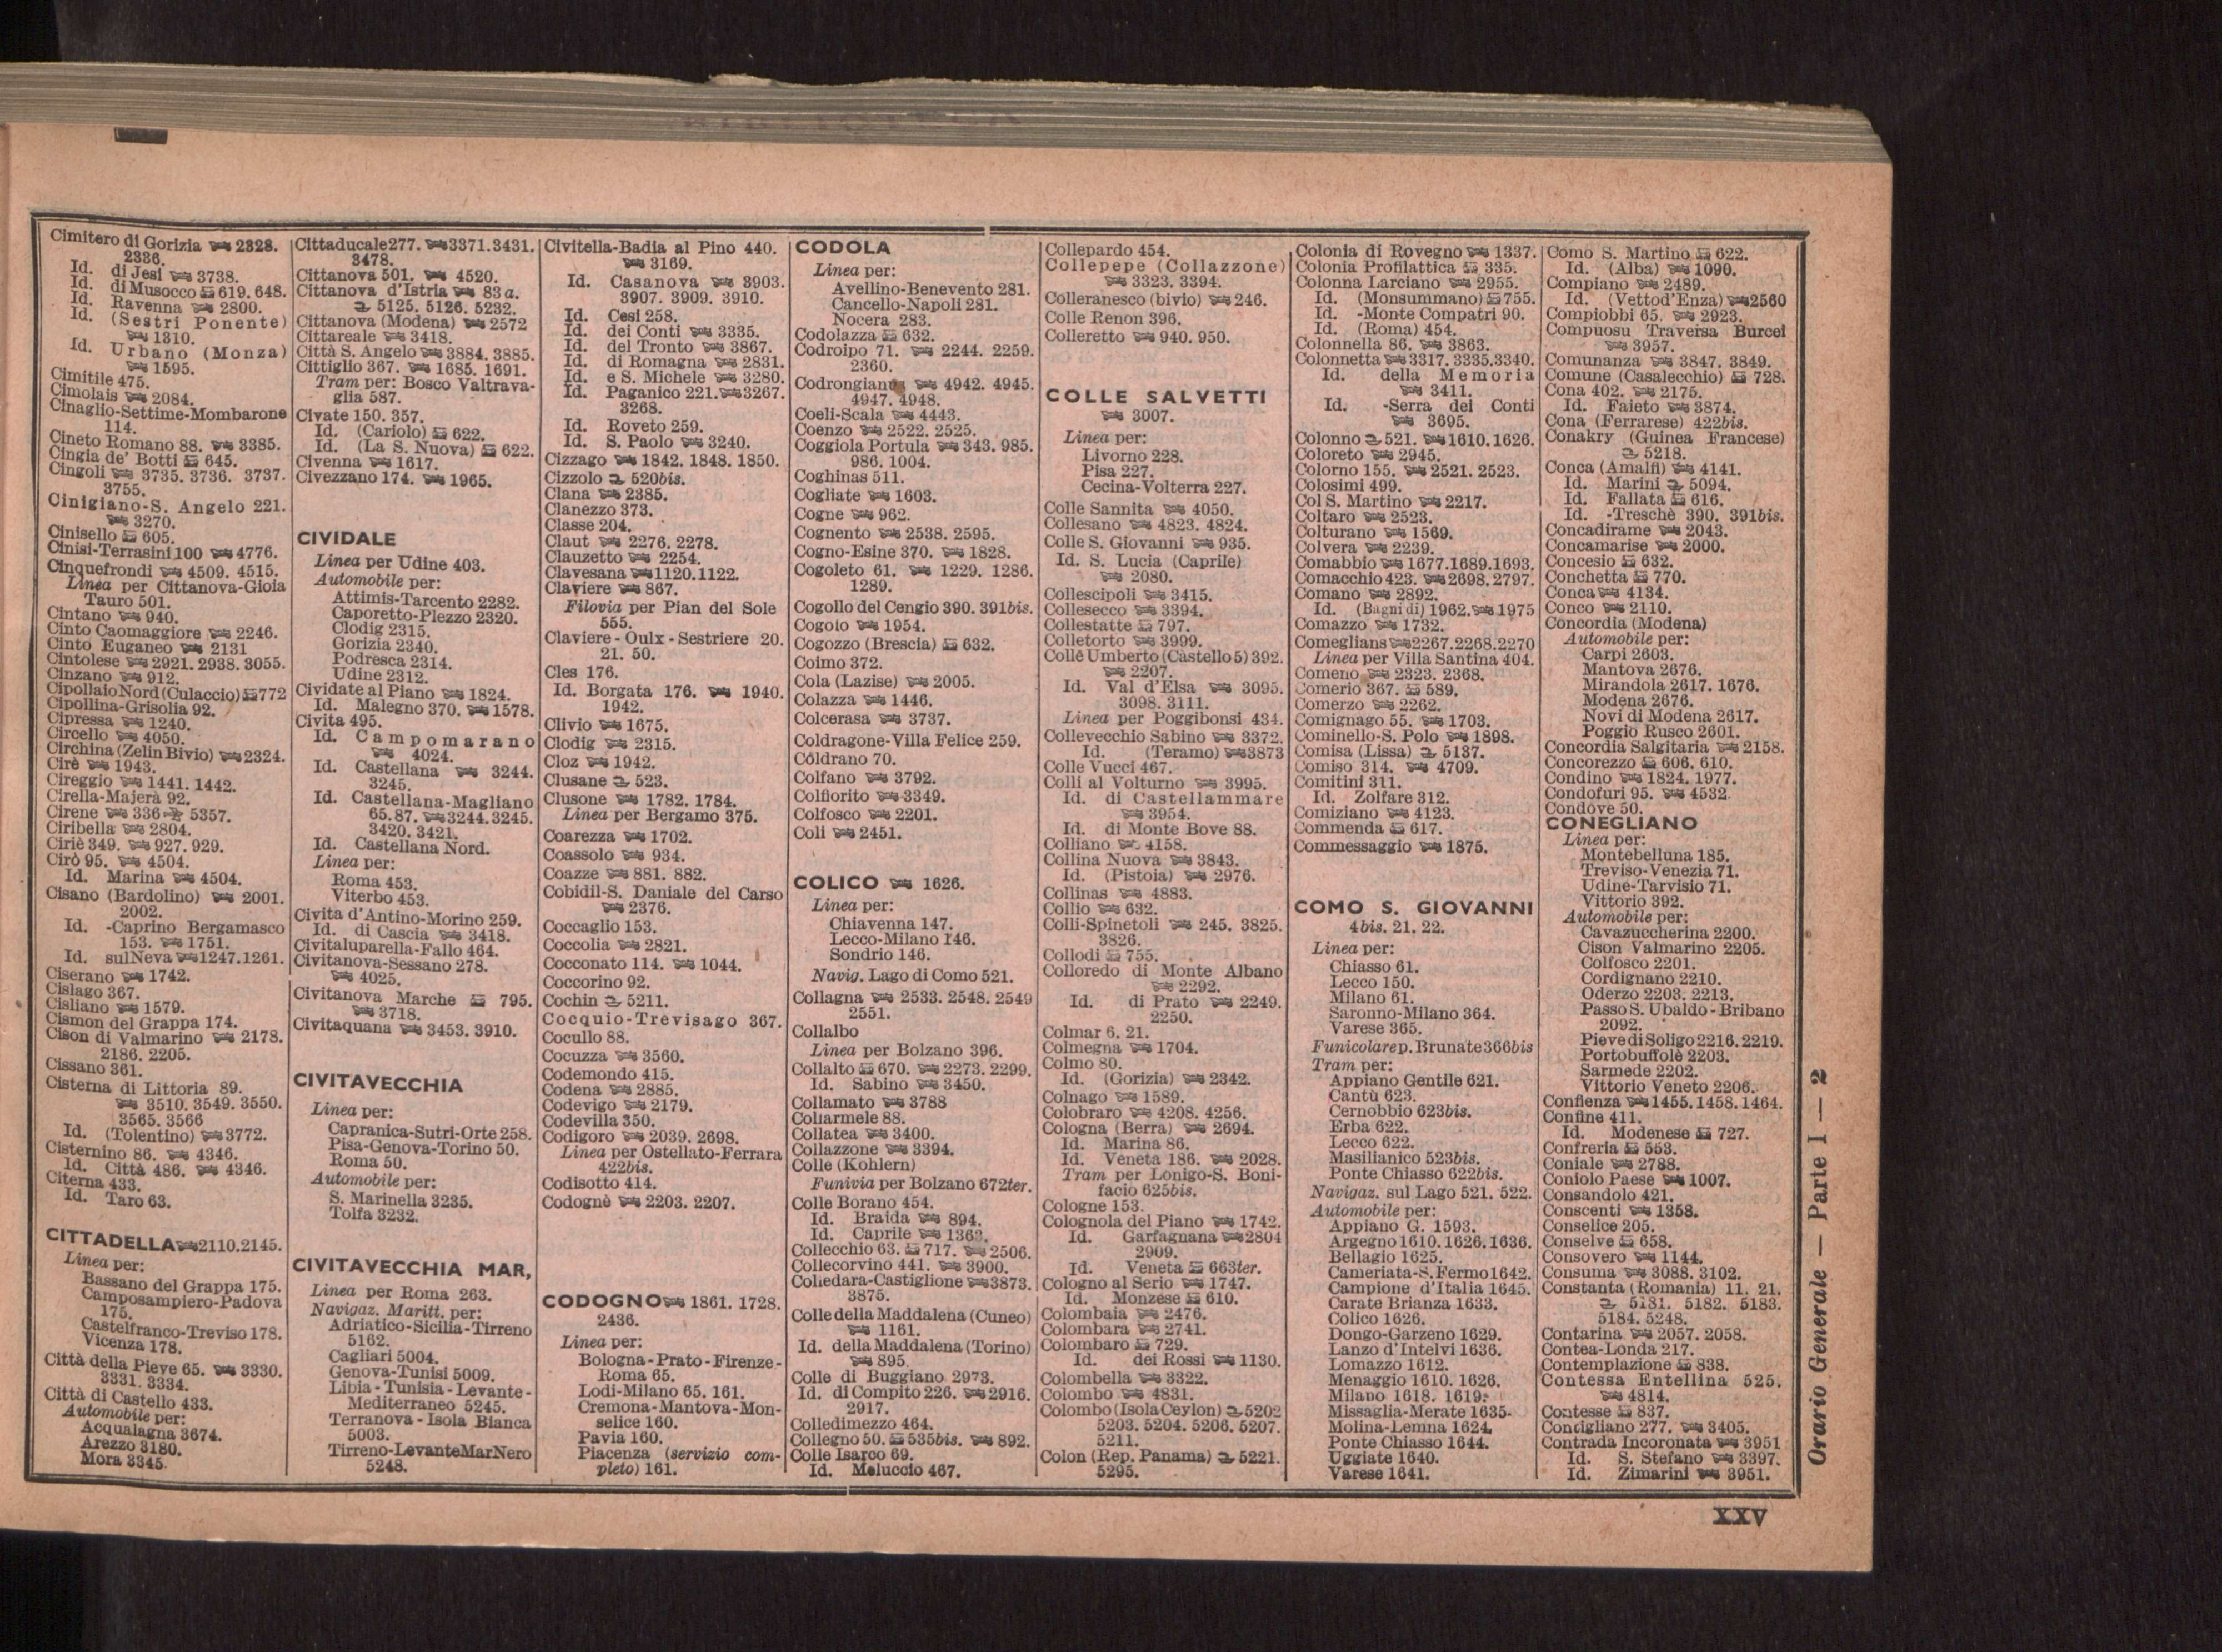 Cimitero di Gorizia 2328.
2336.
Id. di Jesi 3738.
Id. di Musocco 619. 648.
Id. Ravenna 2800.
Id. (Sestri Ponente)
1310.
Id. Urbano (Monza)
1595.
Cimitile 475.
Cimolais 2084.
Cinaglio-Settime-Mombarone
114.
Cineto Romano 88. 3385.
Cingia de' Botti 645.
Cingoli 3735. 3736. 3737.
3755.
Cinigiano-S. Angelo 221.
3270.
Cinisello 605.
Cinisi-Terrasini 100 4776.
Cinquefrondi 4509. 4515.
Linea per Cittanova-Gioia
Tauro 501.
Cintano 940.
Cinto Caomaggiore 2246.
Cinto Euganeo 2131
Cintolese 2921. 2938. 3055.
Cinzano 912.
Cipollaio Nord (Culaccio) 772
Cipollina-Grisolia 92.
Cipressa 1240.
Circello 4050.
Circhina (Zelin Bivio) 2324.
Cirè 1943.
Cireggio 1441. 1442.
Cirella-Majerà 92.
Cirene 336 5357.
Ciribella 2804.
Ciriè 349. 927. 929.
Cirò 95. 4504.
Id. Marina 4504.
Cisano (Bardolino) 2001.
2002.
Id. -Caprino Bergamasco
153. 1751.
Id. sul Neva 1247. 1261.
Ciserano 1742.
Cislago 367.
Cisliano 1579.
Cismon del Grappa 174.
Cison di Valmarino 2178.
2186. 2205.
Cissano 361.
Cisterna di Littoria 89.
3510. 3549. 3550.
3565. 3566
Id. (Tolentino) 3772.
Cisternino 86. 4346.
Id. Città 486. 4346.
Citerna 433.
Id. Taro 63.
CITTADELLA 2110. 2145.
Linea per:
Bassano del Grappa 175.
Camposampiero-Padova
175.
Castelfranco-Treviso 178.
Vicenza 178.
Città della Pieve 65. 3330.
3331. 3334.
Città di Castello 433.
Automobile per:
Acqualagna 3674.
Arezzo 3180.
Mora 3345.
Cittaducale 277. 3371. 3431.
3478.
Cittanova 501. 4520.
Cittanova d'Istria 83a.
5125. 5126. 5232.
Cittanova (Modena) 2572
Cittareale 3418.
Città S. Angelo 3884. 3885.
Cittiglio 367. 1685. 1691.
Tram per: Bosco Valtrava-
glia 587.
Civate 150. 357.
Id. (Cariolo) 622.
Id. (La S. Nuova) 622.
Civenna 1617.
Civezzano 174. 1965.
CIVIDALE
Linea per Udine 403.
Automobile per:
Attimis-Tarcento 2282.
Caporetto-Plezzo 2320.
Clodig 2315.
Gorizia 2340.
Podresca 2314.
Udine 2312.
Cividate al Piano 1824.
Id. Malegno 370. 1578.
Civita 495.
Id. Campomarano
4024.
Id. Castellana 3244.
3245.
Id. Castellana-Magliano
65. 87. 3244. 3245.
3420. 3421.
Id. Castellana Nord.
Linea per:
Roma 453.
Viterbo 453.
Civita d'Antino-Morino 259.
Id. di Cascia 3418.
Civitaluparella-Fallo 464.
Civitanova-Sessano 278.
4025.
Civitanova Marche 795.
3718.
Civitaquana 3453. 3910.
CIVITAVECCHIA
Linea per:
Capranica-Sutri-Orte 258.
Pisa-Genova-Torino 50.
Roma 50.
Automobile per:
S. Marinella 3235.
Tolfa 3232.
CIVITAVECCHIA MAR,
Linea per Roma 263.
Navigaz. Maritt. per:
Adriatico-Sicilia-Tirreno
5162.
Cagliari 5004.
Genova-Tunisi 5009.
Libia-Tunisia-Levante-
Mediterraneo 5245.
Terranova-Isola Bianca
5003.
Tirreno-Levante Mar Nero
5248.
Civitella-Badia al Pino 440.
3169.
Id. Casanova 3903.
3907. 3909. 3910.
Id. Cesi 258.
Id. dei Conti 3335.
Id. del Tronto 3867.
Id. di Romagna 2831.
Id. e S. Michele 3280.
Id. Paganico 221. 3267.
3268.
Id. Roveto 259.
Id. S. Paolo 3240.
Cizzago 1842. 1848. 1850.
Cizzolo 520bis.
Clana 2385.
Clanezzo 373.
Classe 204.
Claut 2276. 2278.
Clauzetto 2254.
Clavesana 1120. 1122.
Claviere 867.
Filovia per Pian del Sole
555.
Claviere-Oulx-Sestriere 20.
21. 50.
Cles 176.
Id. Borgata 176. 1940.
1942.
Clivio 1675.
Clodig 2315.
Cloz 1942.
Clusane 523.
Clusone 1782. 1784.
Linea per Bergamo 375.
Coarezza 1702.
Coassolo 934.
Coazze 881. 882.
Cobidil-S. Daniale del Carso
2376.
Coccaglio 153.
Coccolia 2821.
Cocconato 114. 1044.
Coccorino 92.
Cochin 5211.
Cocquio-Trevisago 367.
Cocullo 88.
Cocuzza 3560.
Codemondo 415.
Codena 2885.
Codevigo 2179.
Codevilla 350.
Codigoro 2039. 2698.
Linea per Ostellato-Ferrara
422bis.
Codisotto 414.
Codognè 2203. 2207.
CODOGNO 1861. 1728.
2436.
Linea per:
Bologna-Prato-Firenze-
Roma 65.
Lodi-Milano 65. 161.
Cremona-Mantova-Mon-
selice 160.
Pavia 160.
Piacenza (servizio com-
pleto) 161.
CODOLA
Linea per:
Avellino-Benevento 281.
Cancello-Napoli 281.
Nocera 283.
Codolazza 632.
Codroipo 71. 2244. 2259.
2360.
Codrongianus 4942. 4945.
4947. 4948.
Coeli-Scala 4443.
Coenzo 2522. 2525.
Coggiola Portula 343. 985.
986. 1004.
Coghinas 511.
Cogliate 1603.
Cogne 962.
Cognento 2538. 2595.
Cogno-Esine 370. 1828.
Cogoleto 61. 1229. 1286.
1289.
Cogollo del Cengio 390. 391bis.
Cogolo 1954.
Cogozzo (Brescia) 632.
Coimo 372.
Cola (Lazise) 2005.
Colazza 1446.
Colcerasa 3737.
Coldragone-Villa Felice 259.
Coldrano 70.
Colfano 3792.
Colfiorito 3349.
Colfosco 2201.
Coli 2451.
COLICO 1626.
Linea per:
Chiavenna 147.
Lecco-Milano 146.
Sondrio 146.
Navig. Lago di Como 521.
Collagna 2533. 2548. 2549
2551.
Collalbo
Linea per Bolzano 396.
Collalto 670. 2273. 2299.
Id. Sabino 3450.
Collamato 3788
Collarmele 88.
Collatea 3400.
Collazzone 3394.
Colle (Kohlern)
Funivia per Bolzano 672ter.
Colle Borano 454.
Id. Braida 894.
Id. Caprile 1363.
Collecchio 63. 717. 2506.
Collecorvino 441. 3900.
Colledara-Castiglione 3873.
3875.
Colle della Maddalena (Cuneo)
1161.
Id. della Maddalena (Torino)
895.
Colle di Buggiano 2973.
Id. di Compito 226. 2916.
2917.
Colledimezzo 464.
Collegno 50. 535bis. 892.
Colle Isarco 69.
Id. Meluccio 467.
Collepardo 454.
Collepepe (Collazzone)
3323. 3394.
Colleranesco (bivio) 246.
Colle Renon 396.
Colleretto 940. 950.
COLLE SALVETTI
3007.
Linea per:
Livorno 228.
Pisa 227.
Cecina-Volterra 227.
Colle Sannita 4050.
Collesano 4823. 4824.
Colle S. Giovanni 935.
Id. S. Lucia (Caprile)
2080.
Collescipoli 3415.
Collesecco 3394.
Collestatte 797.
Colletorto 3999.
Colle Umberto (Castello 5) 392.
2207.
Id. Val d'Elsa 3095.
3098. 3111.
Linea per Poggibonsi 434.
Collevecchio Sabino 3372.
Id. (Teramo) 3873
Colle Vucci 467.
Colli al Volturno 3995.
Id. di Castellammare
3954.
Id. di Monte Bove 88.
Colliano 4158.
Collina Nuova 3843.
Id. (Pistoia) 2976.
Collinas 4883.
Collio 632.
Colli-Spinetoli 245. 3825.
3826.
Collodi 755.
Colloredo di Monte Albano
2292.
Id. di Prato 2249.
2250.
Colmar 6. 21.
Colmegna 1704.
Colmo 80.
Id. (Gorizia) 2342.
Colnago 1589.
Colobraro 4208. 4256.
Cologna (Berra) 2694.
Id. Marina 86.
Id. Veneta 186. 2028.
Tram per Lonigo-S. Boni-
facio 625bis.
Cologne 153.
Colognola del Piano 1742.
Id. Garfagnana 2804
2909.
Id. Veneta 663ter.
Cologno al Serio 1747.
Id. Monzese 610.
Colombaia 2476.
Colombara 2741.
Colombaro 729.
Id. dei Rossi 1130.
Colombella 3322.
Colombo 4831.
Colombo (Isola Ceylon) 5202
5203. 5204. 5206. 5207.
5211.
Colon (Rep. Panama) 5221.
5295.
Colonia di Rovegno 1337.
Colonia Profilattica 335.
Colonna Larciano 2955.
Id. (Monsummano) 755.
Id. -Monte Compatri 90.
Id. (Roma) 454.
Colonnella 86. 3863.
Colonnetta 3317. 3335. 3340.
Id. della Memoria
3411.
Id. -Serra dei Conti
3695.
Colonno 521. 1610. 1626.
Coloreto 2945.
Colorno 155. 2521. 2523.
Colosimi 499.
Col S. Martino 2217.
Coltaro 2523.
Colturano 1569.
Colvera 2239.
Comabbio 1677. 1689. 1693.
Comacchio 423. 2698. 2797.
Comano 2892.
Id. (Bagni di) 1962. 1975
Comazzo 1732.
Comeglians 2267. 2268. 2270
Linea per Villa Santina 404.
Comeno 2323. 2368.
Comerio 367. 589.
Comerzo 2262.
Comignago 55. 1703.
Cominello-S. Polo 1898.
Comisa (Lissa) 5137.
Comiso 314. 4709.
Comitini 311.
Id. Zolfare 312.
Comiziano 4123.
Commenda 617.
Commessaggio 1875.
COMO S. GIOVANNI
4bis. 21. 22.
Linea per:
Chiasso 61.
Lecco 150.
Milano 61.
Saronno-Milano 364.
Varese 365.
Funicolare p. Brunate 366bis
Tram per:
Appiano Gentile 621.
Cantù 623.
Cernobbio 623bis.
Erba 622.
Lecco 622.
Masilianico 523bis.
Ponte Chiasso 622bis.
Navigaz. sul Lago 521. 522.
Automobile per:
Appiano G. 1593.
Argegno 1610. 1626. 1636.
Bellagio 1625.
Cameriata-S. Fermo 1642.
Campione d'Italia 1645.
Carate Brianza 1633.
Colico 1626.
Dongo-Garzeno 1629.
Lanzo d'Intelvi 1636.
Lomazzo 1612.
Menaggio 1610. 1626.
Milano 1618. 1619.
Missaglia-Merate 1635.
Molina-Lemna 1624.
Ponte Chiasso 1644.
Uggiate 1640.
Varese 1641.
Como S. Martino 622.
Id. (Alba) 1090.
Compiano 2489.
Id. (Vetto d'Enza) 2560
Compiobbi 65. 2923.
Compuosu Traversa Burcei
3957.
Comunanza 3847. 3849.
Comune (Casalecchio) 728.
Cona 402. 2175.
Id. Faieto 3874.
Cona (Ferrarese) 422bis.
Conakry (Guinea Francese)
5218.
Conca (Amalfi) 4141.
Id. Marini 5094.
Id. Fallata 616.
Id. -Treschè 390. 391bis.
Concadirame 2043.
Concamarise 2000.
Concesio 632.
Conchetta 770.
Conca 4134.
Conco 2110.
Concordia (Modena)
Automobile per:
Carpi 2603.
Mantova 2676.
Mirandola 2617. 1676.
Modena 2676.
Novi di Modena 2617.
Poggio Rusco 2601.
Concordia Salgitaria 2158.
Concorezzo 606. 610.
Condino 1824. 1977.
Condofuri 95. 4532.
Condove 50.
CONEGLIANO
Linea per:
Montebelluna 185.
Treviso-Venezia 71.
Udine-Tarvisio 71.
Vittorio 392.
Automobile per:
Cavazuccherina 2200.
Cison Valmarino 2205.
Colfosco 2201.
Cordignano 2210.
Oderzo 2203. 2213.
Passo S. Ubaldo-Bribano
2092.
Pieve di Soligo 2216. 2219.
Portobuffolè 2203.
Sarmede 2202.
Vittorio Veneto 2206.
Confienza 1455. 1458. 1464.
Confine 411.
Id. Modenese 727.
Confreria 553.
Coniale 2788.
Coniolo Paese 1007.
Consandolo 421.
Conscenti 1358.
Conselice 205.
Conselve 658.
Consovero 1144.
Consuma 3088. 3102.
Constanta (Romania) 11. 21.
5181. 5182. 5183.
5184. 5248.
Contarina 2057. 2058.
Contea-Londa 217.
Contemplazione 838.
Contessa Entellina 525.
4814.
Contesse 837.
Contigliano 277. 3405.
Contrada Incoronata 3951
Id. S. Stefano 3397.
Id. Zimarini 3951.
Orario Generale — Parte I — 2
XXV